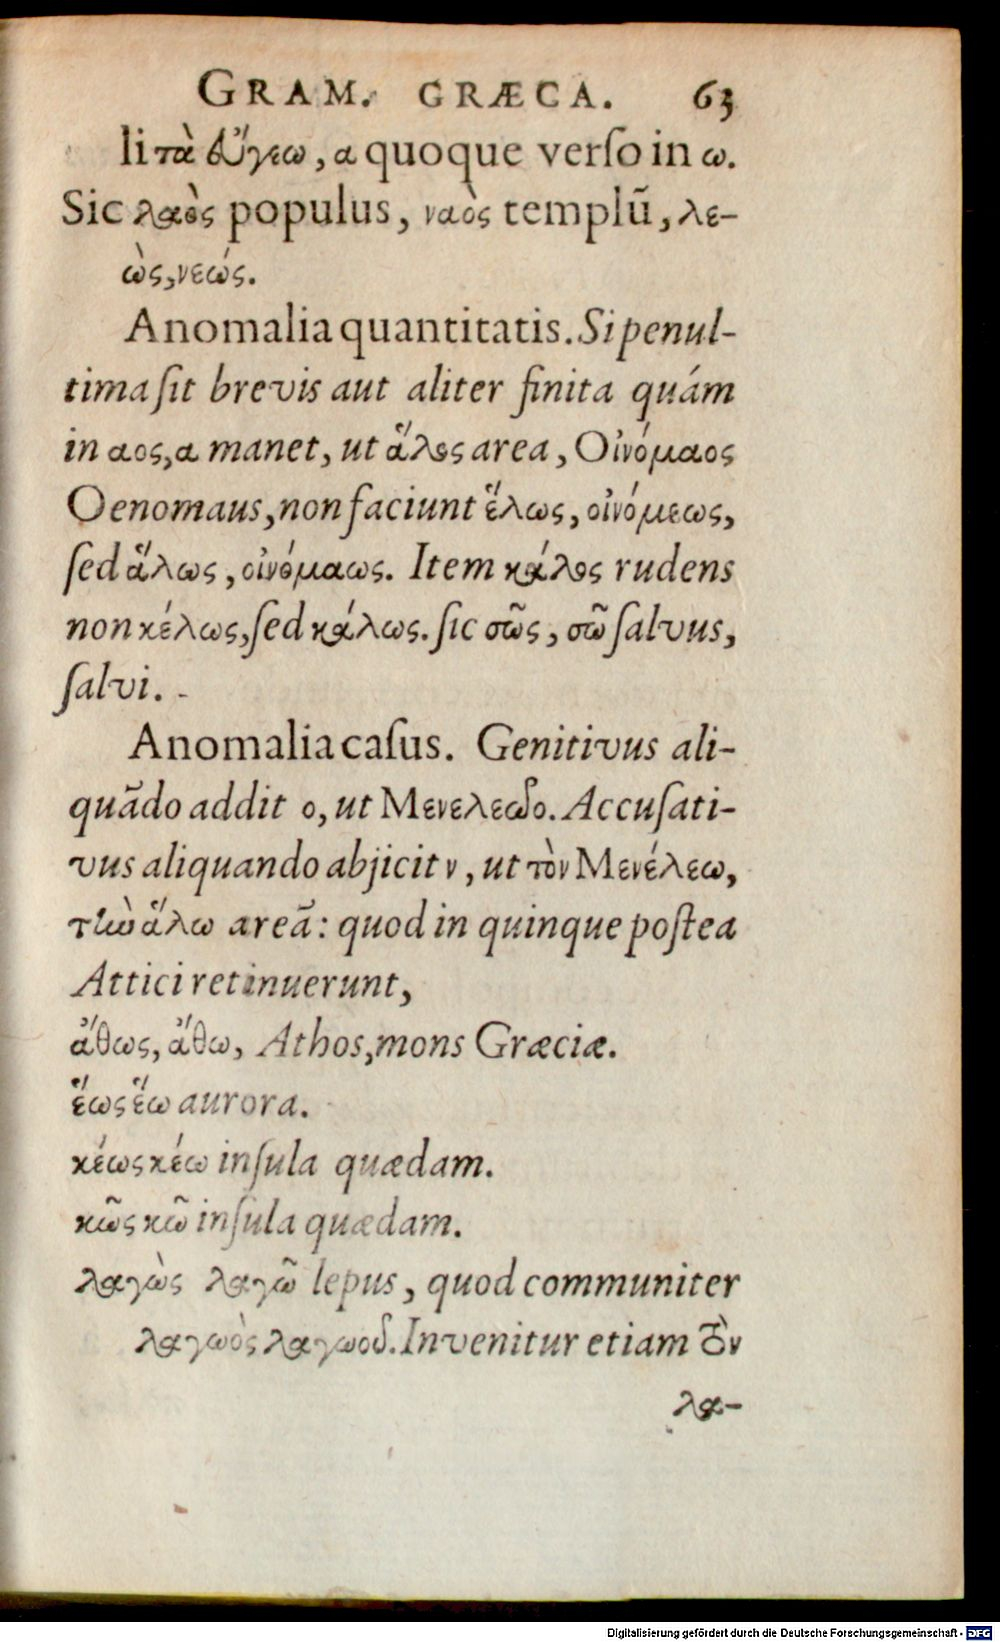 GRAM. GRÆCA. 63
li τὰ εὔγεω, α quoque verſo in ω.
Sic λαὸς populus, ναὸς templũ, λε-
ὼς, νεώς.
Anomalia quantitatis. Si penul-
tima ſit brevis aut aliter finita quám
in αος, α manet, ut ἅλος area, Οἰνόμαος
Oenomaus, non faciunt ἕλως, οἰνόμεως,
ſed ἅλως, οἰνόμαως. Item κάλος rudens
non κέλως, ſed κάλως. ſic σῶς, σῶ ſalvus,
ſalvi.
Anomalia caſus. Genitivus ali-
quãdo addit ο, ut Μενελεῶο. Accuſati-
vus aliquando abjicit ν, ut τὸν Μενέλεω,
τὴν ἅλω areã: quod in quinque poſtea
Attici retinuerunt,
ἄθως, ἄθω, Athos, mons Græciæ.
ἕως ἕω aurora.
κέως κέω inſula quædam.
κῶς κῶ inſula quædam.
λαγὼς λαγῶ lepus, quod communiter
λαγωὸς λαγωοῦ. Invenitur etiam τὸν
λα-
Digitalisierung gefördert durch die Deutsche Forschungsgemeinschaft - DFG